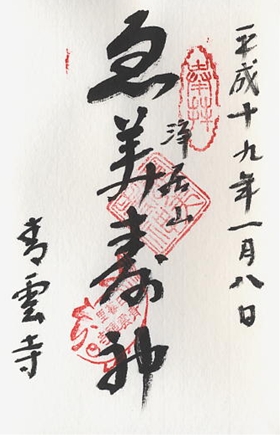 平成十九年一月八日
奉拝
浄居山
恵美寿神
青雲寺